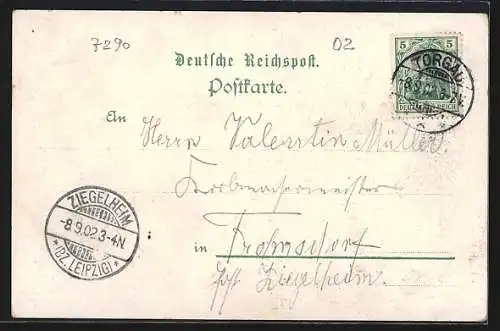 7290 02
5 5
DEUTSCHES REICH
TORGAU
Deutsche Reichspost.
Postkarte.
An Herrn Valentin Müller
Korbmachermeister
in Frohnsdorf
Post Ziegelheim.
ZIEGELHEIM
-8.9.02 3-4N
* (BZ. LEIPZIG) *